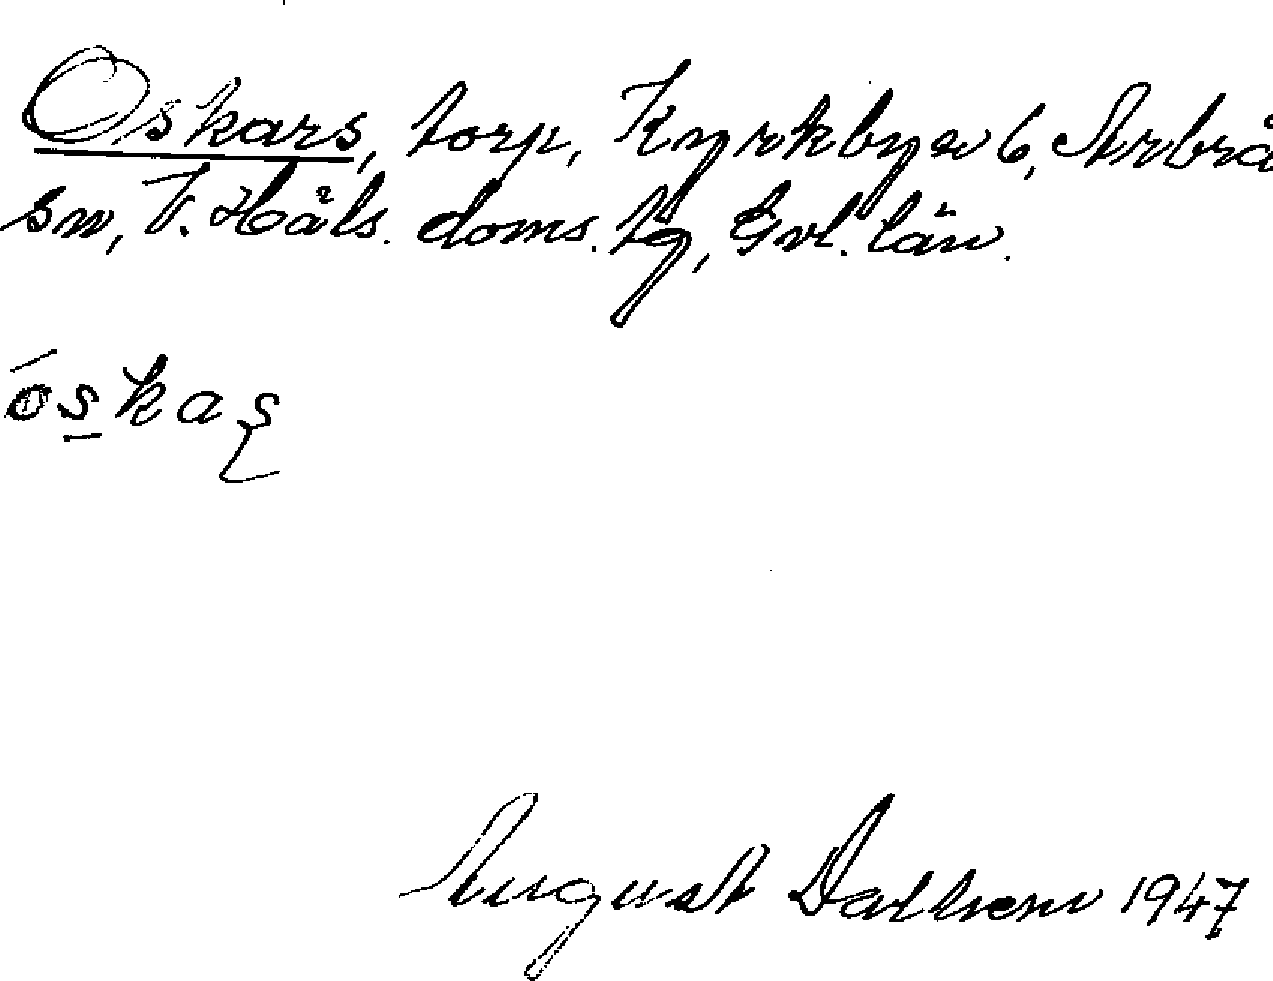 Oskars, torp, Kyrkbyn 6, Arbrå
sn, V. Häls. doms. tg, Gvl. län.
óskaş
August Dalhem 1947